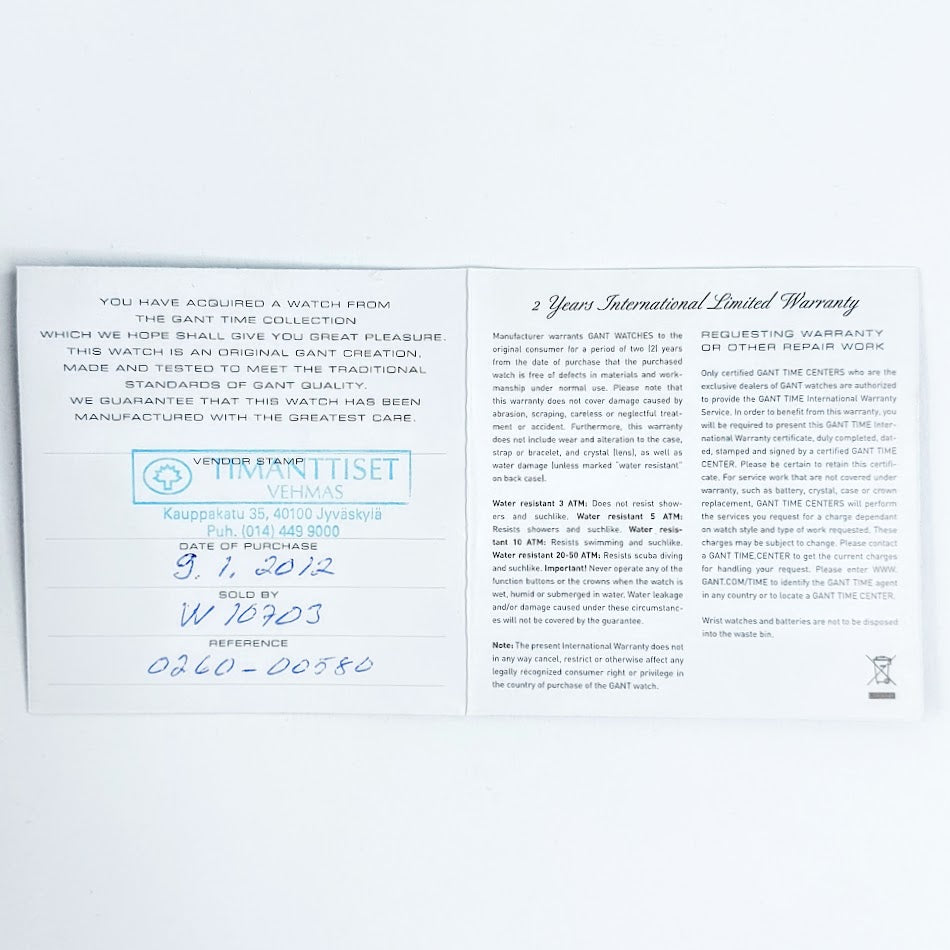 YOU HAVE ACQUIRED A WATCH FROM
THE GANT TIME COLLECTION
WHICH WE HOPE SHALL GIVE YOU GREAT PLEASURE.
THIS WATCH IS AN ORIGINAL GANT CREATION,
MADE AND TESTED TO MEET THE TRADITIONAL
STANDARDS OF GANT QUALITY.
WE GUARANTEE THAT THIS WATCH HAS BEEN
MANUFACTURED WITH THE GREATEST CARE.
VENDOR STAMP
TIMANTTISET
VEHMAS
Kauppakatu 35, 40100 Jyväskylä
Puh. (014) 449 9000
DATE OF PURCHASE
9.1.2012
SOLD BY
W 10703
REFERENCE
0260-00580
2 Years International Limited Warranty
Manufacturer warrants GANT WATCHES to the
original consumer for a period of two (2) years
from the date of purchase that the purchased
watch is free of defects in materials and work-
manship under normal use. Please note that
this warranty does not cover damage caused by
abrasion, scraping, careless or neglectful treat-
ment or accident. Furthermore, this warranty
does not include wear and alteration to the case,
strap or bracelet, and crystal (lens), as well as
water damage (unless marked "water resistant"
on back case).
Water resistant 3 ATM: Does not resist show-
ers and suchlike. Water resistant 5 ATM:
Resists showers and suchlike. Water resis-
tant 10 ATM: Resists swimming and suchlike.
Water resistant 20-50 ATM: Resists scuba diving
and suchlike. Important! Never operate any of the
function buttons or the crowns when the watch is
wet, humid or submerged in water. Water leakage
and/or damage caused under these circumstanc-
es will not be covered by the guarantee.
Note: The present International Warranty does not
in any way cancel, restrict or otherwise affect any
legally recognized consumer right or privilege in
the country of purchase of the GANT watch.
REQUESTING WARRANTY
OR OTHER REPAIR WORK
Only certified GANT TIME CENTERS who are the
exclusive dealers of GANT watches are authorized
to provide the GANT TIME International Warranty
Service. In order to benefit from this warranty, you
will be required to present this GANT TIME Inter-
national Warranty certificate, duly completed, dat-
ed, stamped and signed by a certified GANT TIME
CENTER. Please be certain to retain this certifi-
cate. For service work that are not covered under
warranty, such as battery, crystal, case or crown
replacement, GANT TIME CENTERS will perform
the services you request for a charge dependant
on watch style and type of work requested. These
charges may be subject to change. Please contact
a GANT TIME CENTER to get the current charges
for handling your request. Please enter WWW.
GANT.COM/TIME to identify the GANT TIME agent
in any country or to locate a GANT TIME CENTER.
Wrist watches and batteries are not to be disposed
into the waste bin.